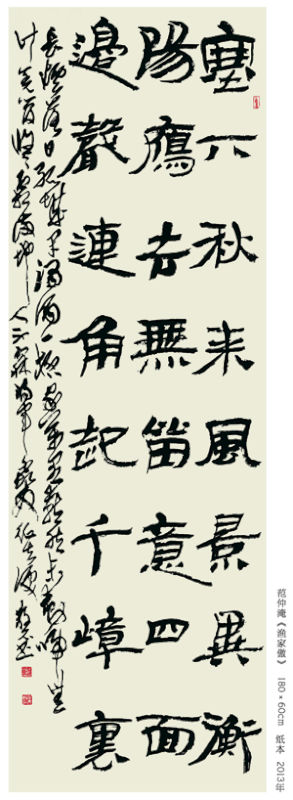 塞下秋来風景異衡
陽鴈去無留意四面
邊聲連角起千嶂裏
長煙落日孤城閉濁酒一杯家萬里燕然未勒歸無
计羌管悠悠霜滿地人不寐將軍白髮征夫淚
范仲淹《渔家傲》 180×60cm 纸本 2013年